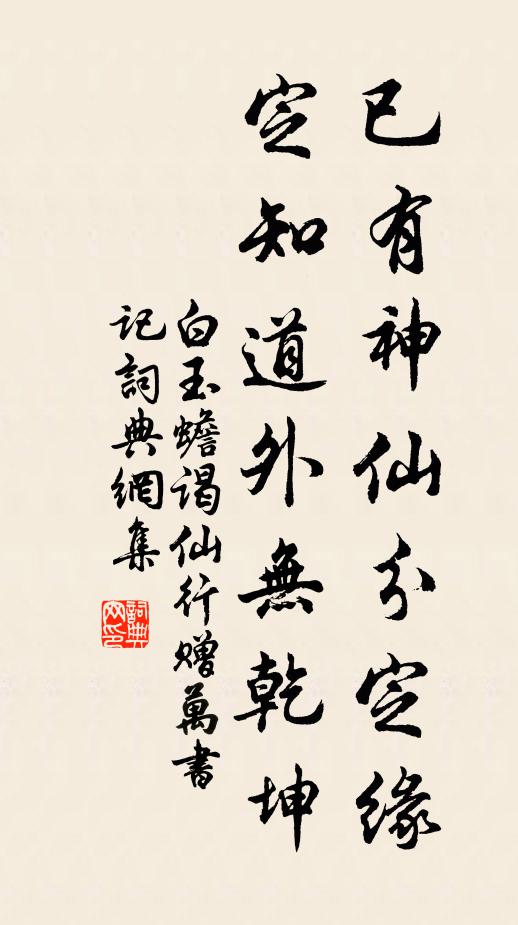 已有神仙分定緣
定知道外無乾坤
白玉蟾謁仙行贈萬書
記詞典網集
詞典网印